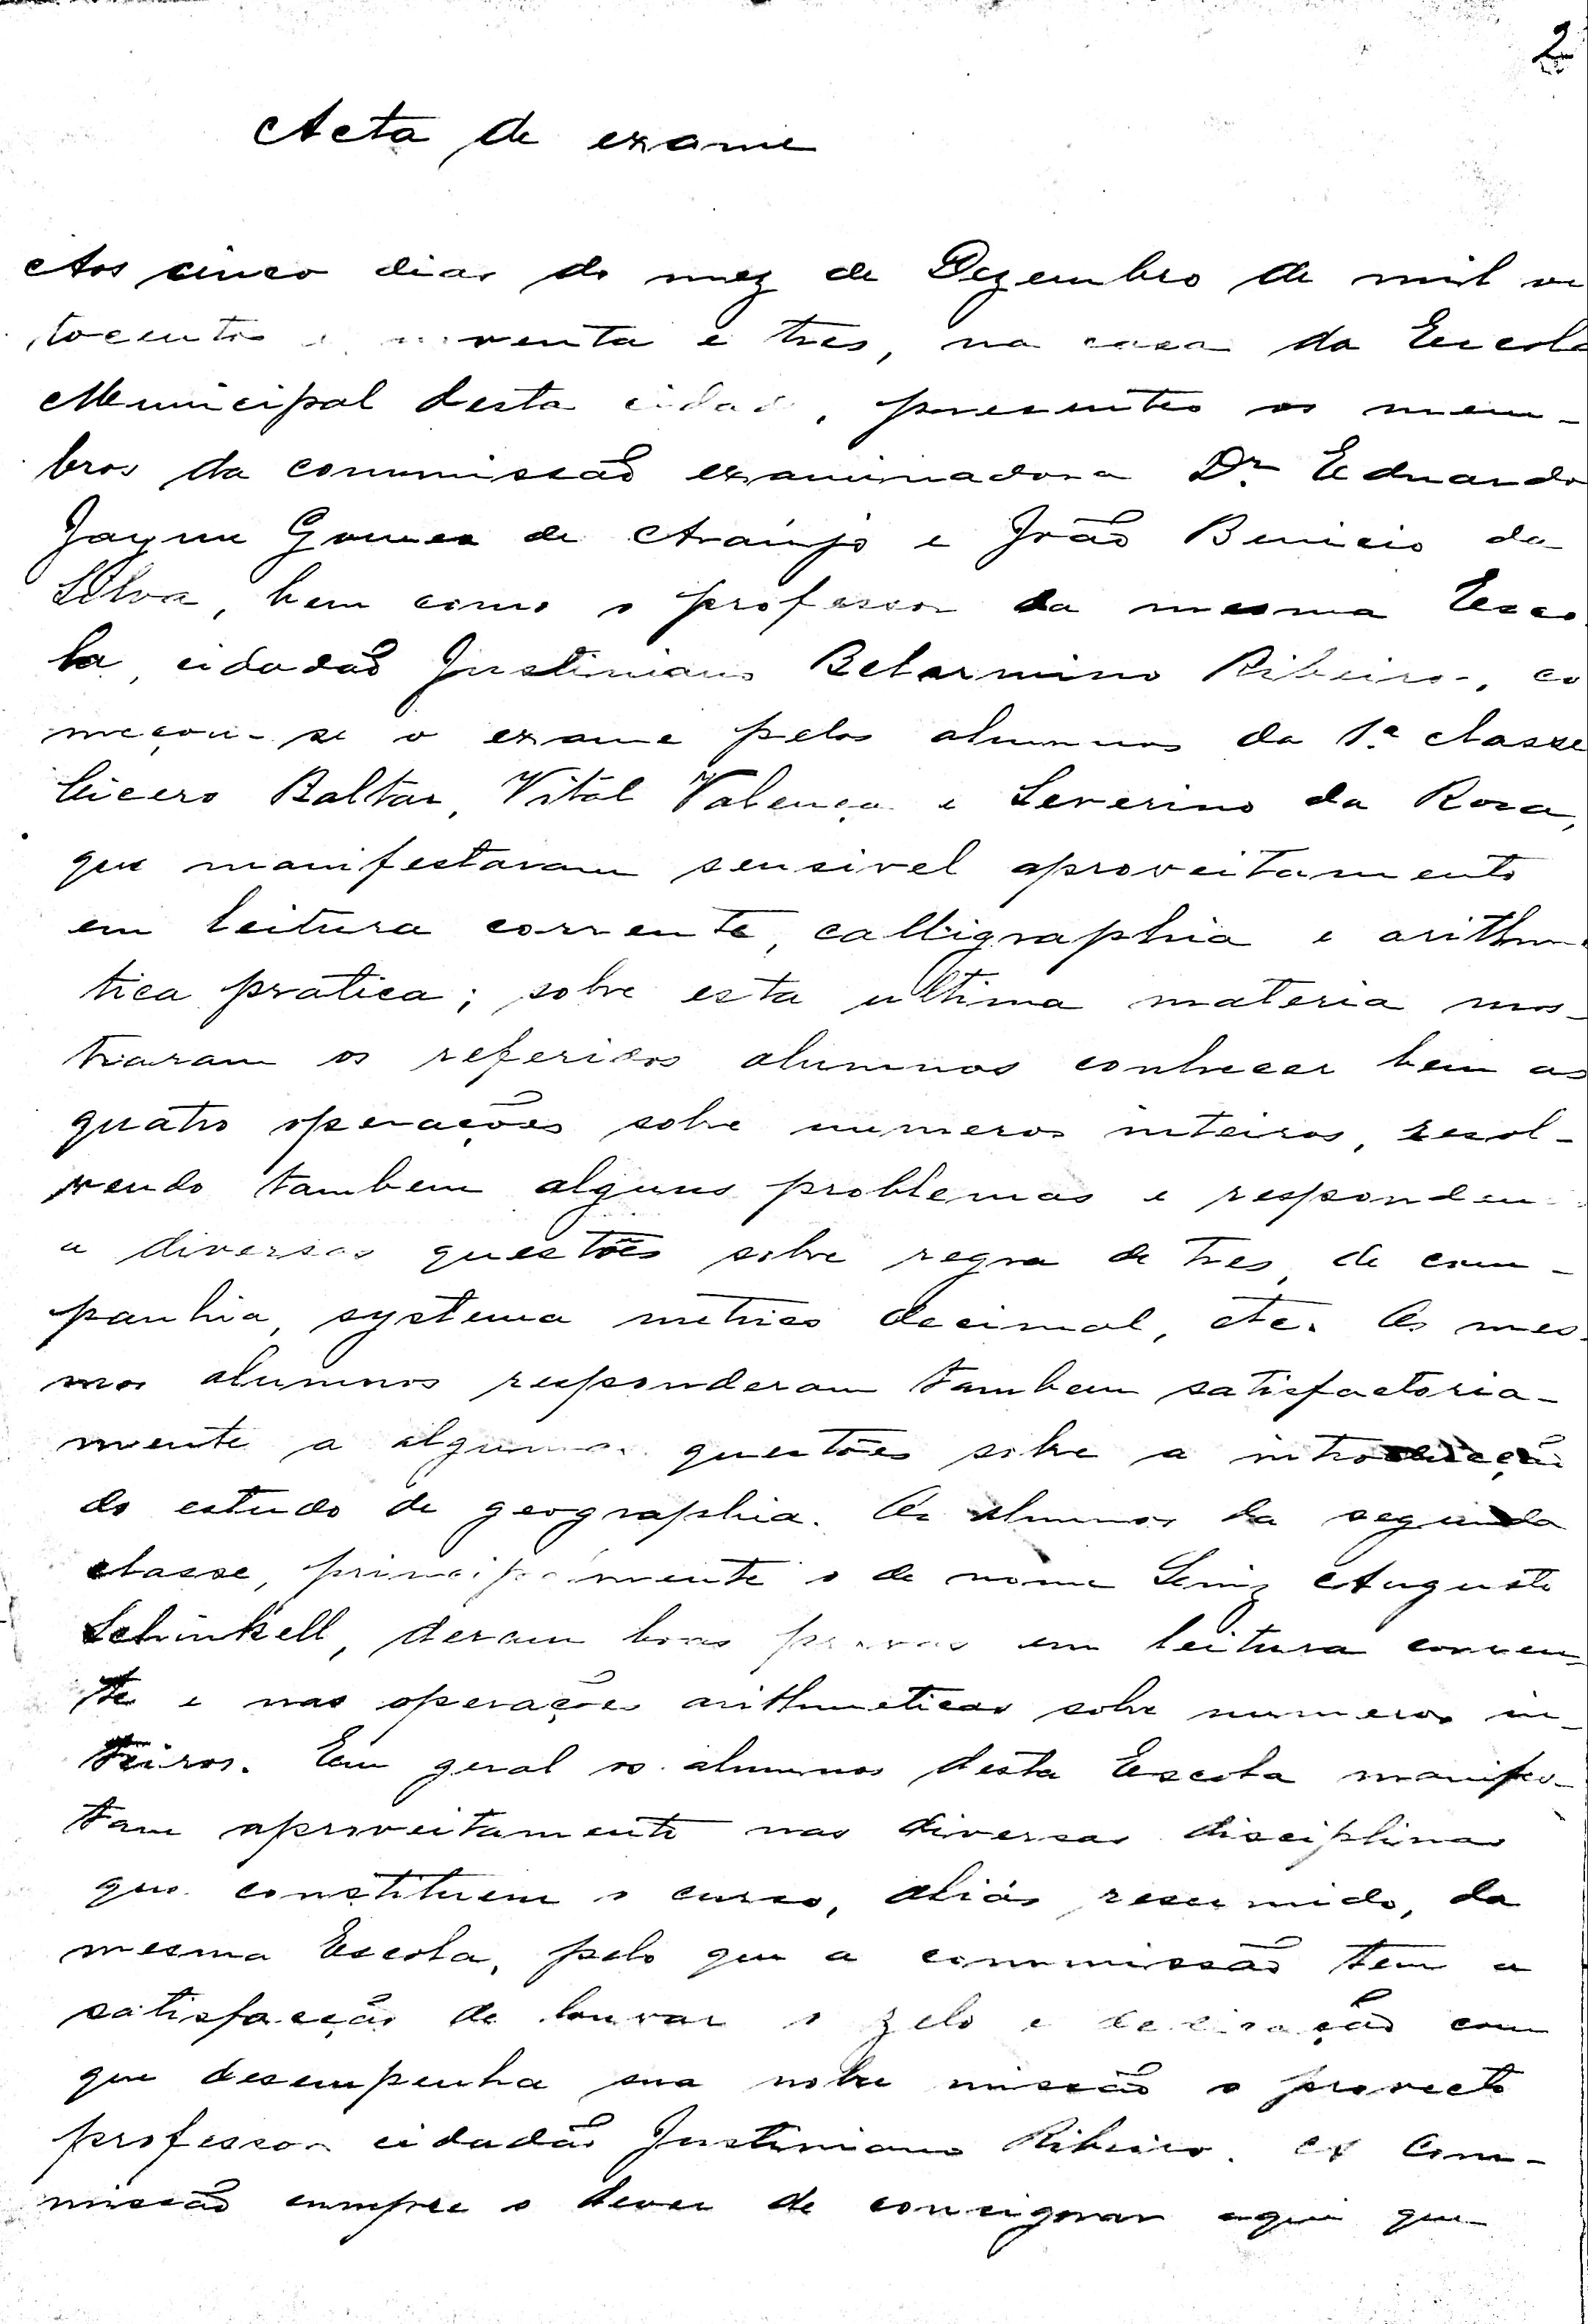 2
Acta de exame
Aos cinco dias do mez de Dezembro de mil oi
tocentos e noventa e tres, na casa da Escola
Municipal desta cidade, presentes os mem-
bros da commissão examinadora Dr. Eduardo
Jayme Gomes de Araújo e João Benicio da
Silva, bem como o professor da mesma Esco
la, cidadão Justiniano Belarmino Ribeiro, co
meçou-se o exame pelos alumnos da 1.ª classe
Cicero Baltar, Vitál Valença e Severino da Rosa,
que manifestaram sensivel aproveitamento
em leitura corrente, calligraphia e arithme
tica pratica; sobre esta ultima materia mos-
traram os referidos alumnos conhecer bem as
quatro operações sobre numeros inteiros, resol-
vendo tambem alguns problemas e responden
a diversas questões sobre regra de tres, de com-
panhia, systema metrico decimal, etc. Os mes-
mos alumnos responderam tambem satisfactoria-
mente a algumas questões sobre a introducção
do estudo de geographia. Os alumnos da segunda
classe, principalmente o de nome Luiz Augusto
Schinkell, deram boas provas em leitura corren-
te e nas operações arithmeticas sobre numeros in-
teiros. Em geral os alumnos desta Escola manifes-
tam aproveitamento nas diversas disciplinas
que constituem o curso, aliás resumido, da
mesma Escola, pelo que a commissão tem a
satisfacção de louvar o zelo e dedicação com
que desempenha sua nobre missão o provecto
professor cidadão Justiniano Ribeiro. A Com-
missão cumpre o dever de consignar aqui que